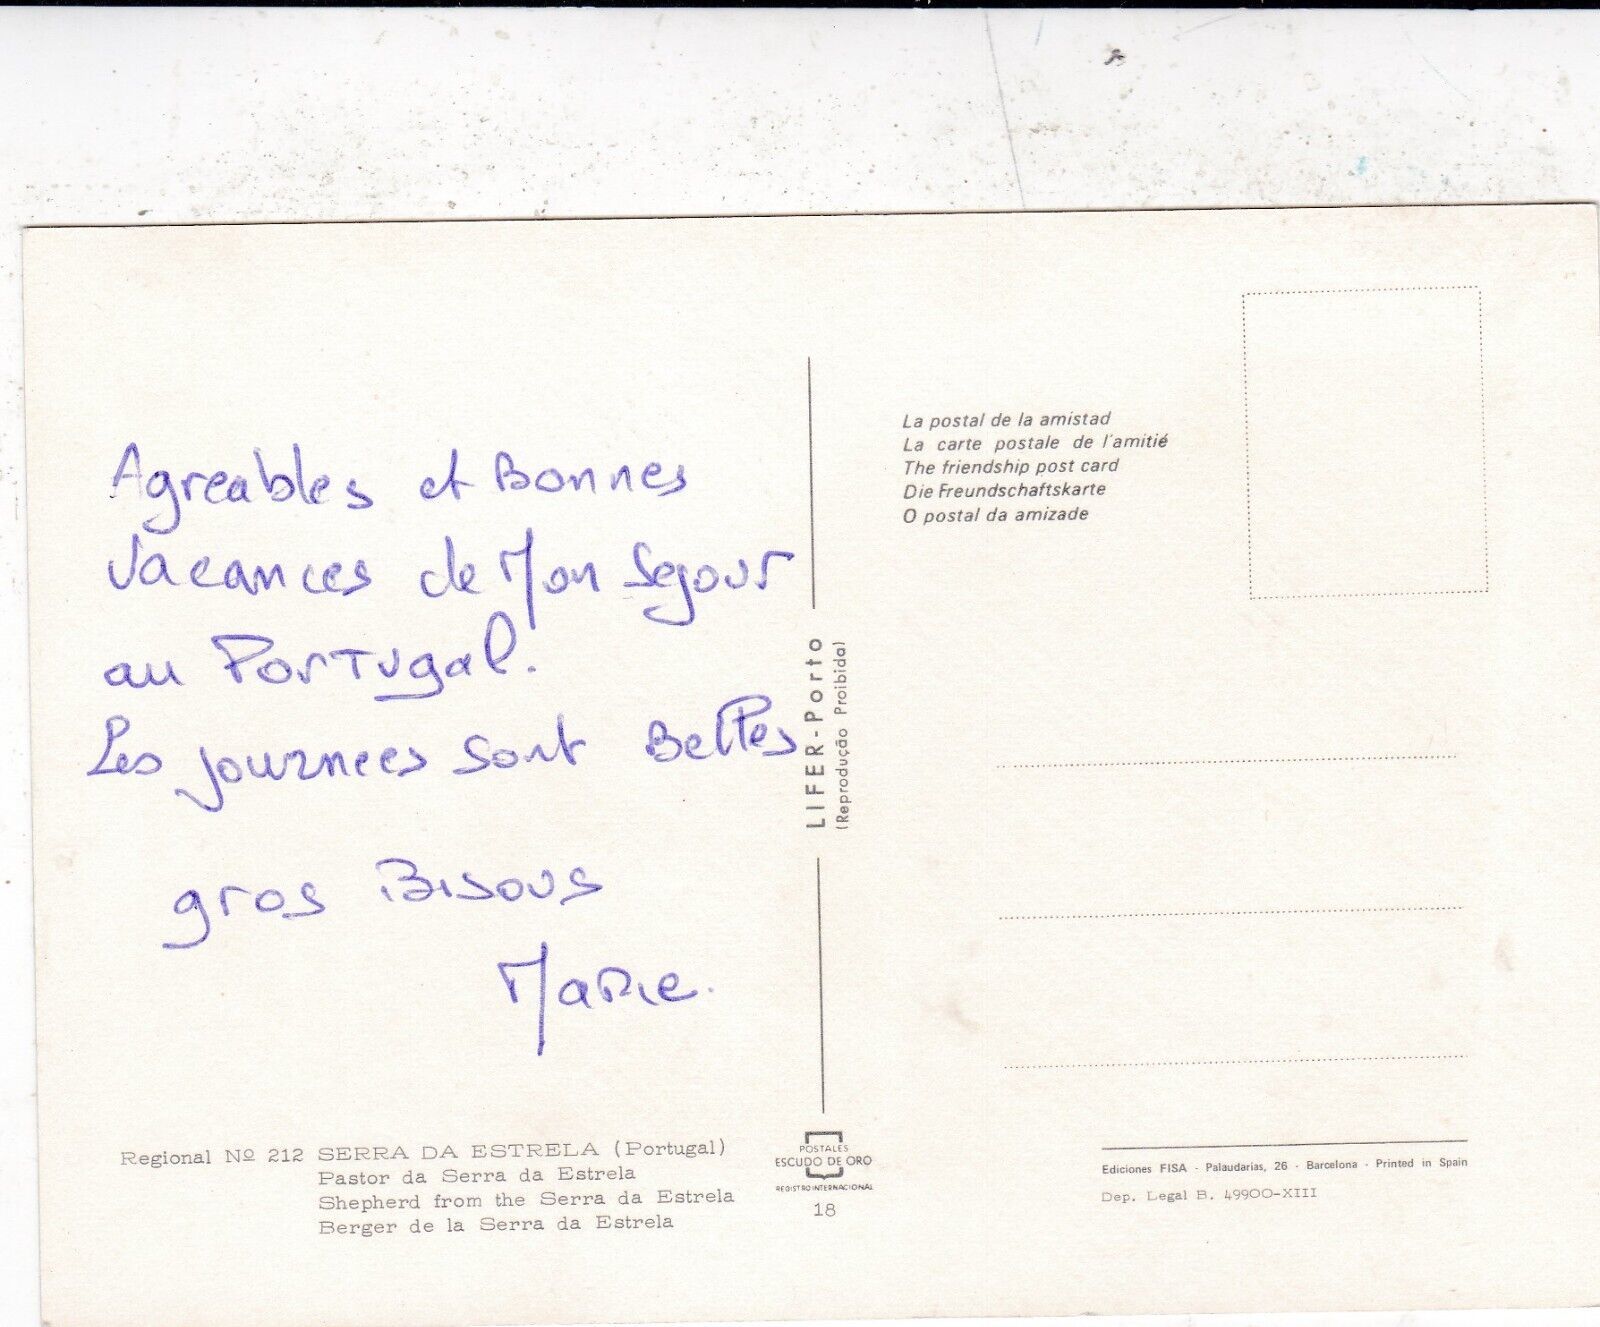 Agreables et Bonnes
Vacances de Mon Sejour
au Portugal.
Les journees sont Belles
gros Bisous
Marie.
Regional Nº 212 SERRA DA ESTRELA (Portugal)
Pastor da Serra da Estrela
Shepherd from the Serra da Estrela
Berger de la Serra da Estrela
LIFER - Porto
(Reprodução Proibida)
POSTALES
ESCUDO DE ORO
REGISTRO INTERNACIONAL
18
La postal de la amistad
La carte postale de l'amitié
The friendship post card
Die Freundschaftskarte
O postal da amizade
Ediciones FISA - Palaudarias, 26 - Barcelona - Printed in Spain
Dep. Legal B. 49900-XIII